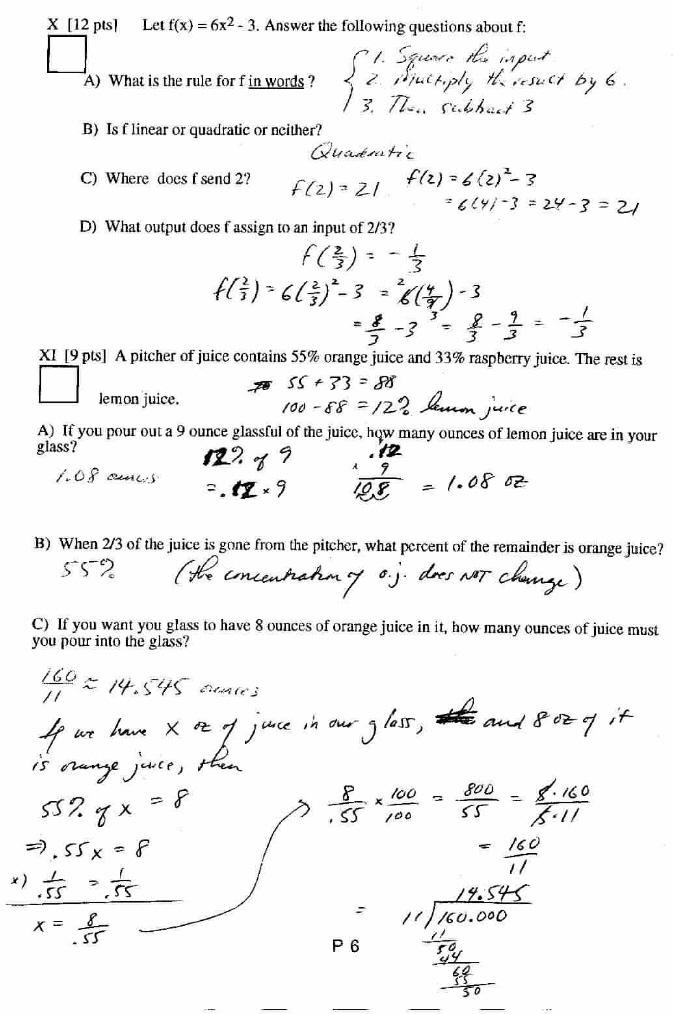 X [12 pts] Let f(x) = 6x² - 3. Answer the following questions about f:
A) What is the rule for f in words ?
1. Square the input
2. Multiply the result by 6.
3. Then subtract 3
B) Is f linear or quadratic or neither?
Quadratic
C) Where does f send 2?
f(2) = 21
f(2) = 6(2)² - 3
= 6(4) - 3 = 24 - 3 = 21
D) What output does f assign to an input of 2/3?
f(2/3) = - 1/3
f(2/3) = 6(2/3)² - 3 = ²6(4/9) - 3
3
= 8/3 - 3 = 8/3 - 9/3 = - 1/3
XI [9 pts] A pitcher of juice contains 55% orange juice and 33% raspberry juice. The rest is
lemon juice.
55 + 33 = 88
100 - 88 = 12% lemon juice
A) If you pour out a 9 ounce glassful of the juice, how many ounces of lemon juice are in your
glass?
1.08 ounces
12% of 9
= .12 × 9
.12
× 9
108
= 1.08 oz
B) When 2/3 of the juice is gone from the pitcher, what percent of the remainder is orange juice?
55% (the concentration of o.j. does NOT change)
C) If you want you glass to have 8 ounces of orange juice in it, how many ounces of juice must
you pour into the glass?
160/11 ≈ 14.545 ounces
If we have x oz of juice in our glass, and 8 oz of it
is orange juice, then
55% of x = 8
⇒ .55x = 8
×) 1/.55 = 1/.55
x = 8/.55
8/.55 × 100/100 = 800/55 = 5·160/5·11
= 160/11
14.545
= 11)160.000
11
50
44
60
55
50
P 6